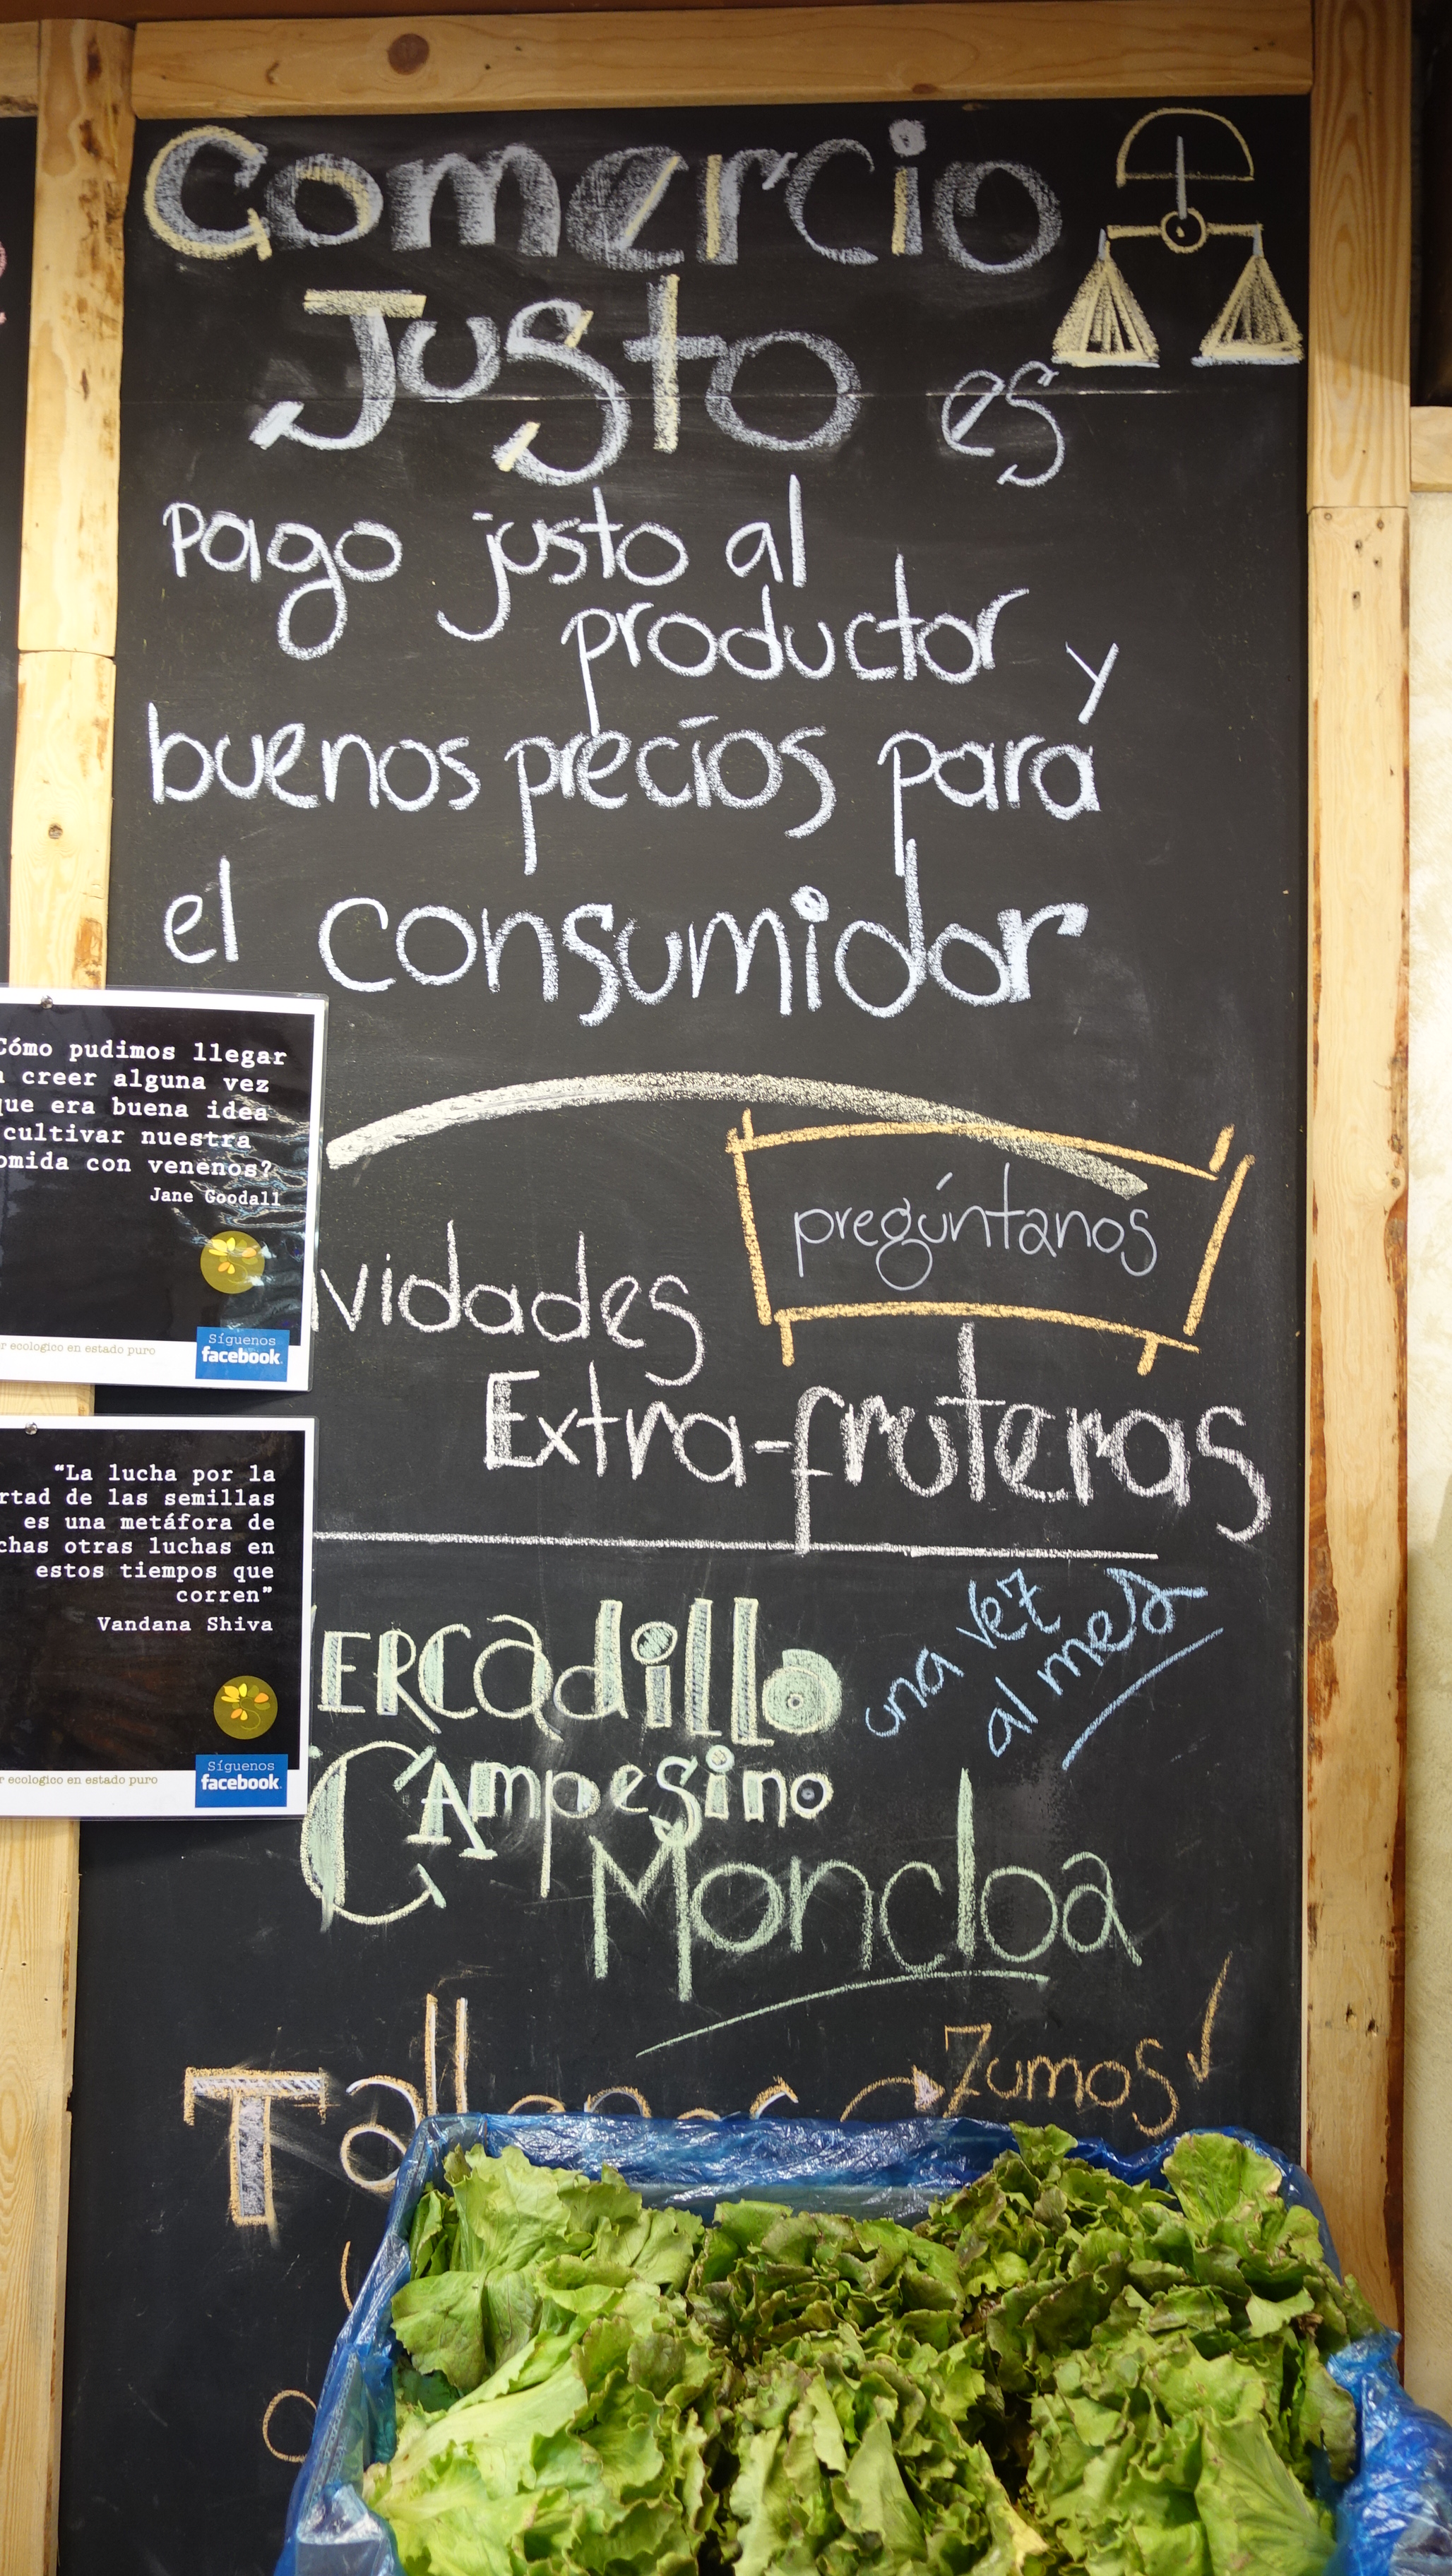 Comercio
Justo es
pago justo al
productor y
buenos precios para
el consumidor
pregúntanos
vidades
Extra-fruteras
ERCadillo
una vez
al mes
Campesino
Moncloa
Zumos
Cómo pudimos llegar
creer alguna vez
ue era buena idea
cultivar nuestra
omida con venenos?
Jane Goodall
Síguenos
facebook
r ecologico en estado puro
“La lucha por la
rtad de las semillas
es una metáfora de
chas otras luchas en
estos tiempos que
corren”
Vandana Shiva
Síguenos
facebook
r ecologico en estado puro